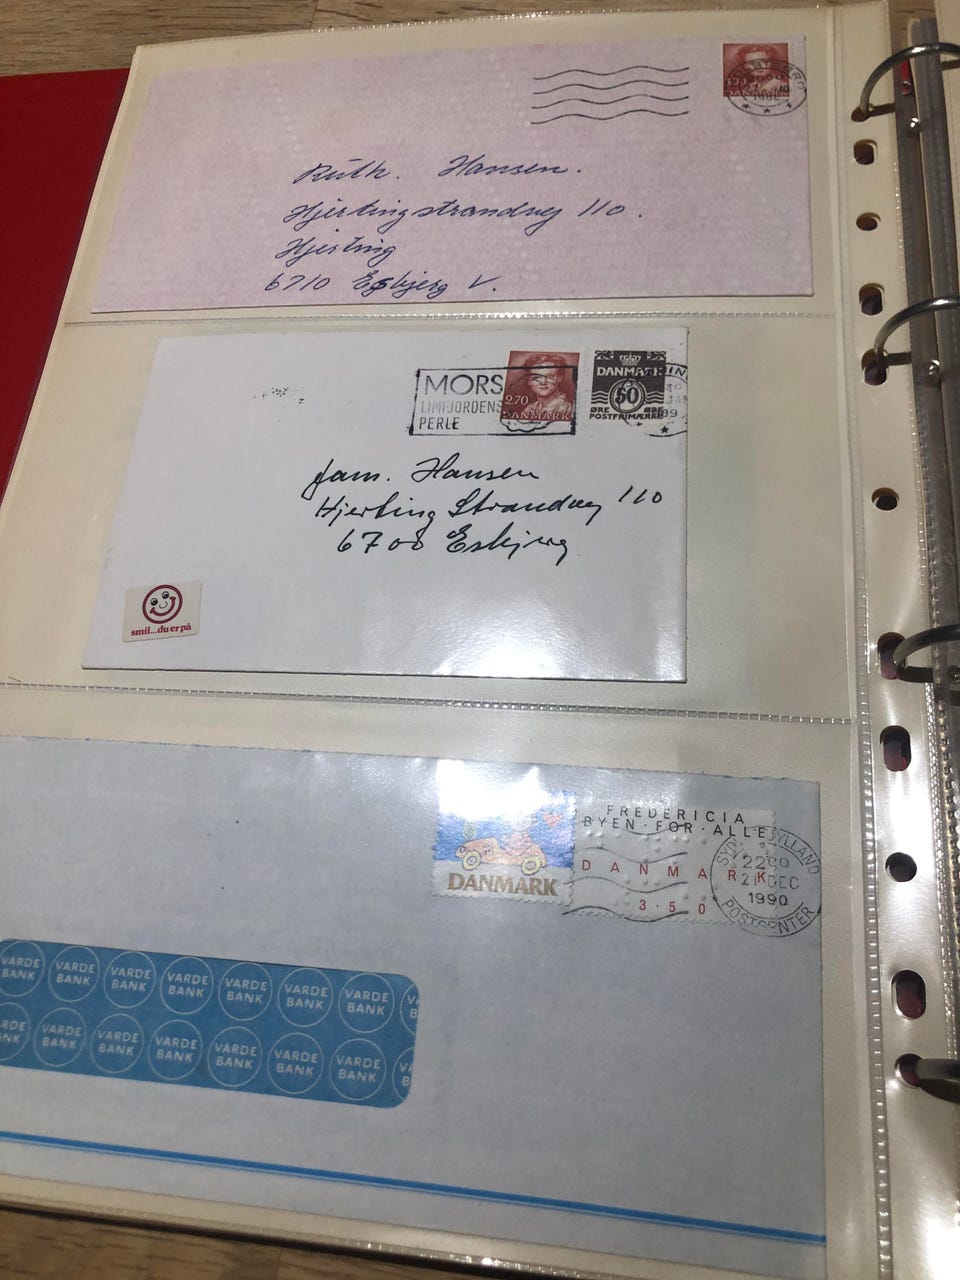 Ruth. Hansen.
Hjertingstrandvej 110.
Hjerting
6710 Esbjerg V.
MORS
LIMFJORDENS
PERLE
2.70
DANMARK
DANMARK
50
ØRE ØRE
POSTFRIMÆRKE
Jam. Hansen
Hjerting Strandvej 110
6700 Esbjerg
smil...du er på
FREDERICIA
BYEN·FOR·ALLE
DANMARK
DANMARK
3.50
SYDJYLLAND
2200
21 DEC
1990
POSTCENTER
VARDE BANK VARDE BANK VARDE BANK VARDE BANK VARDE BANK VARDE BANK VARDE BANK
VARDE BANK VARDE BANK VARDE BANK VARDE BANK VARDE BANK VARDE BANK